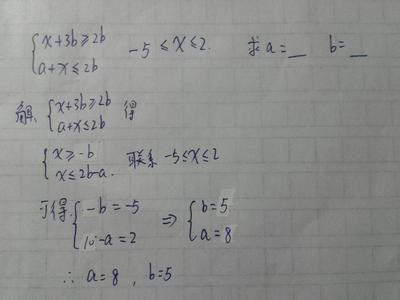 {x+3b≥2b
a+x≤2b -5≤x≤2. 求a=__ b=__
解 {x+3b≥2b
a+x≤2b 得
{x≥-b
x≤2b-a. 联系 -5≤x≤2
可得 {-b=-5
10-a=2 ⇒ {b=5
a=8
∴ a=8, b=5